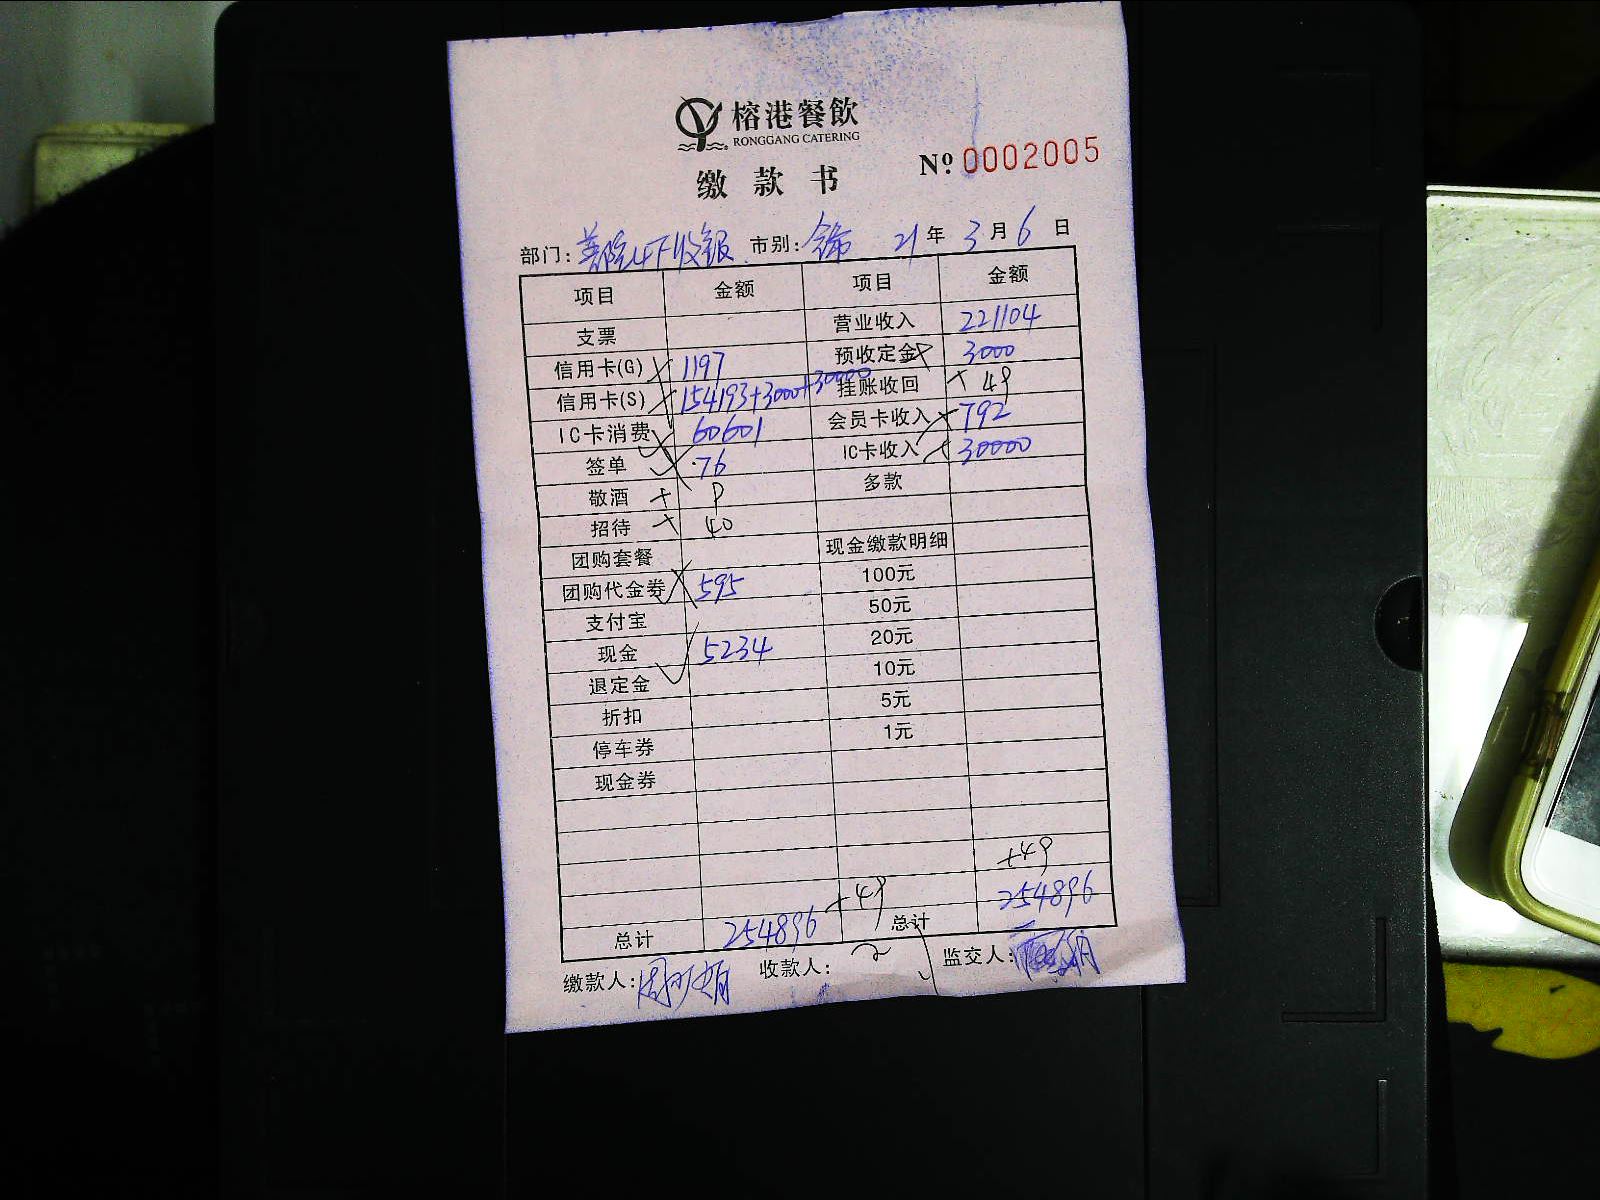 榕港餐飲
RONGGANG CATERING
缴款书
№ 0002005
部门: 4F收银 市别: 全市 21年3月6日
项目 金额 项目 金额
支票 营业收入 221104
信用卡(G) 1197 预收定金 3000
信用卡(S) 154193+3000+30000 挂账收回 + 49
IC卡消费 60601 会员卡收入 792
签单 76 IC卡收入 30000
敬酒 9 多款
招待 40
团购套餐 现金缴款明细
团购代金券 595 100元
支付宝 50元
现金 5234 20元
退定金 10元
折扣 5元
停车券 1元
现金券
+49
总计 254896 +49 总计 254896
缴款人: 收款人: 监交人: